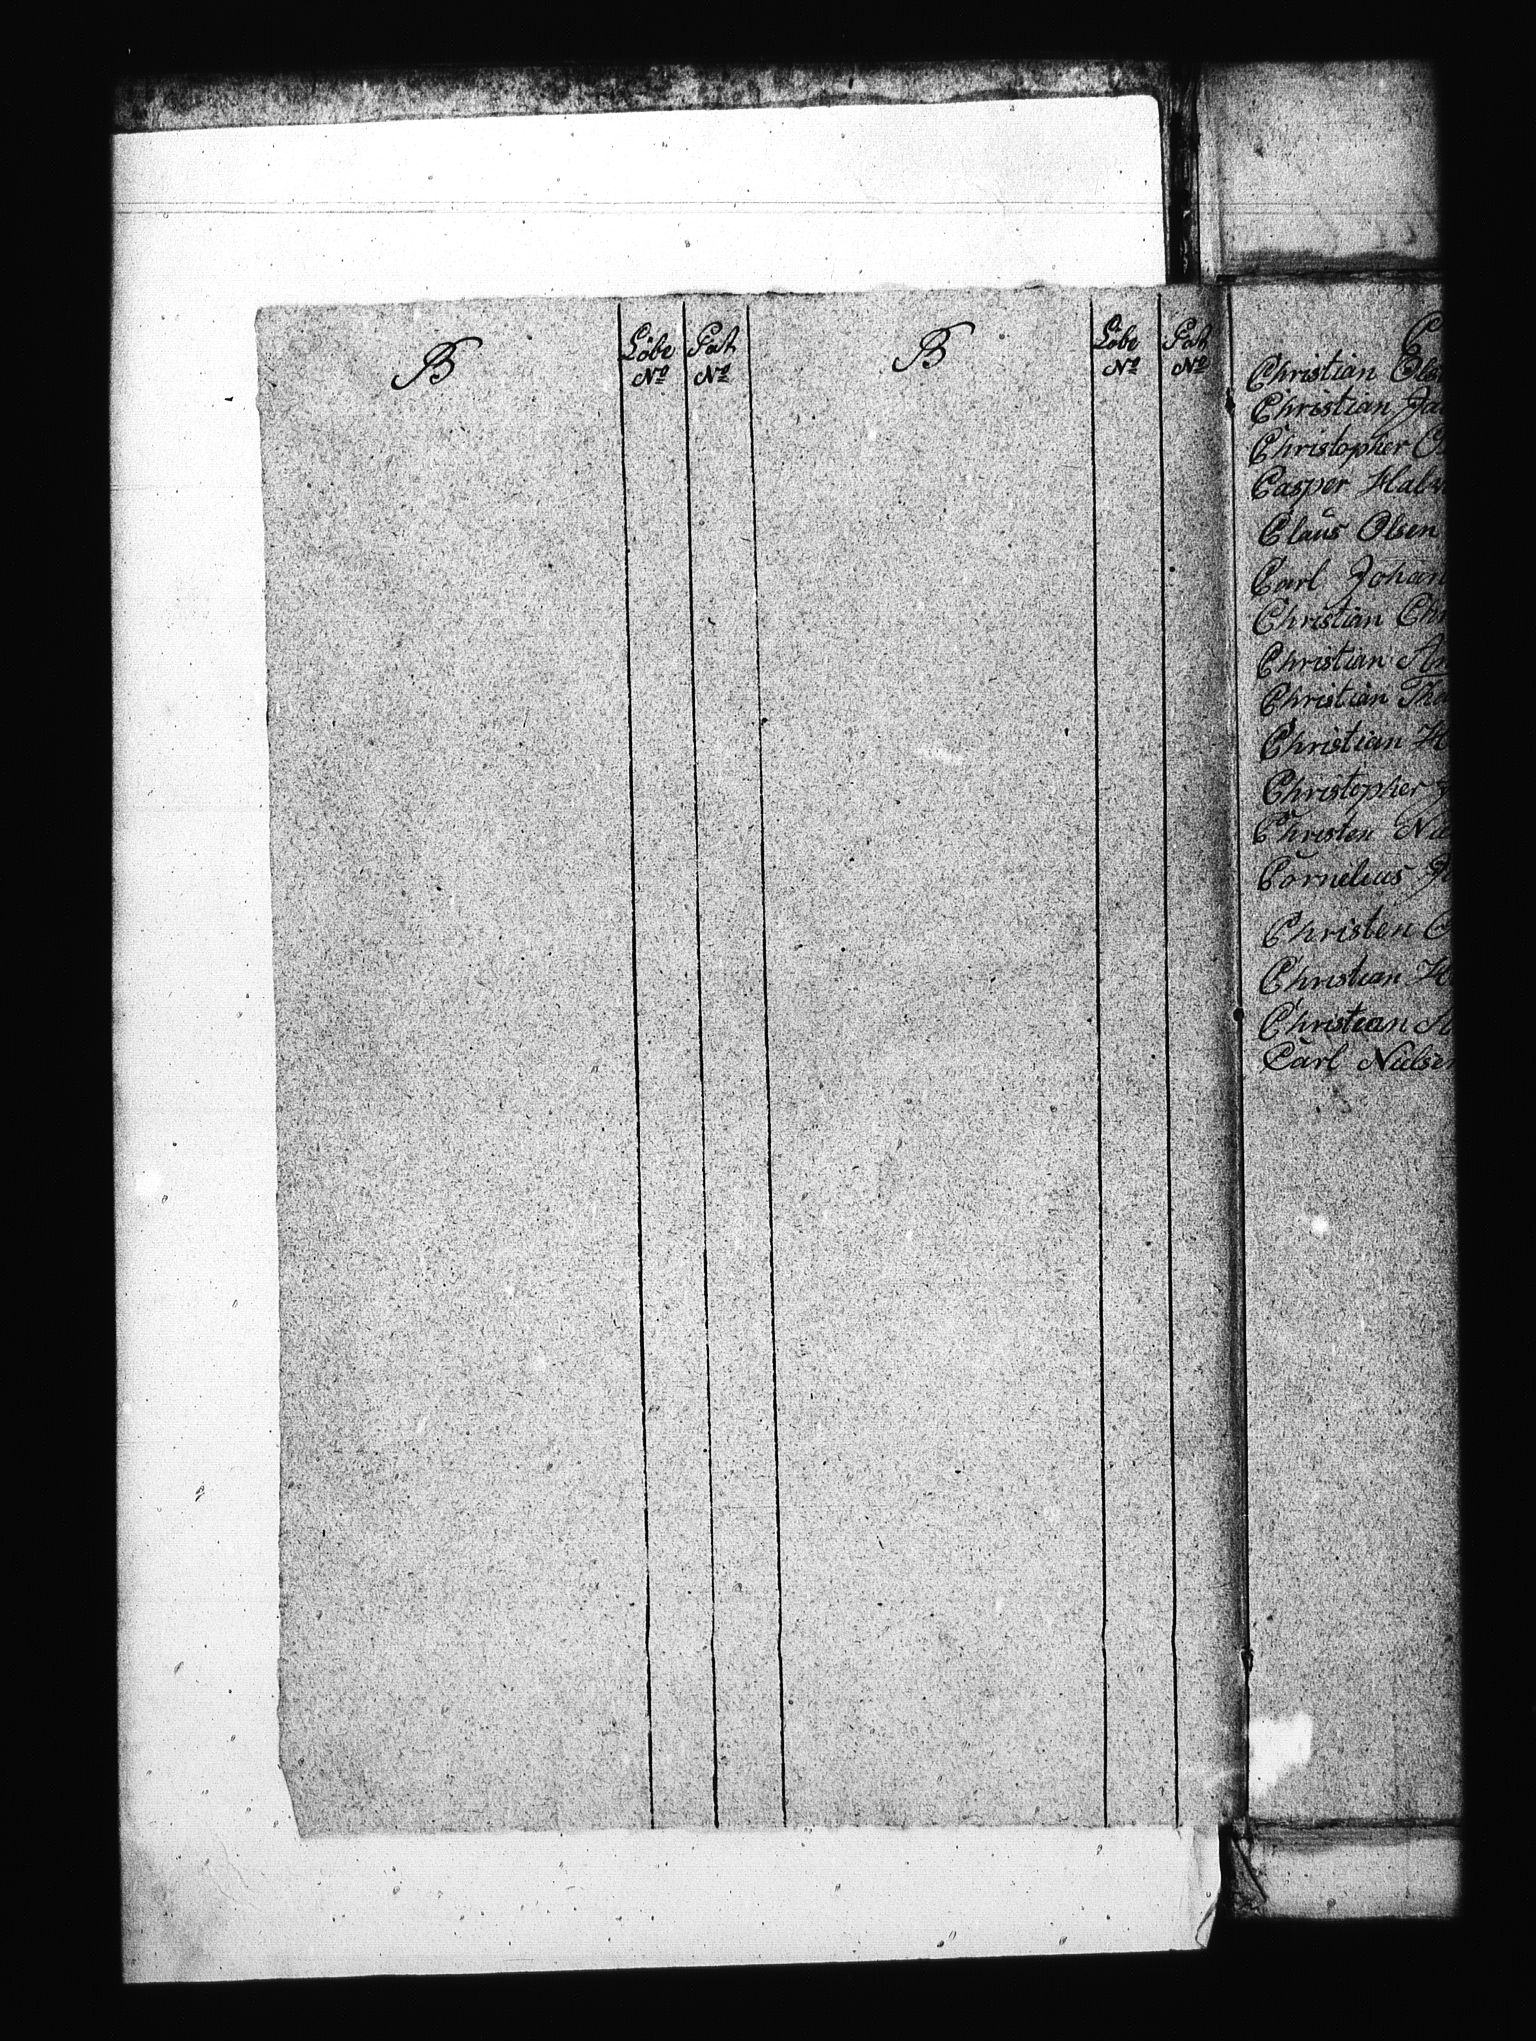 B Löbe Pat B Löbe Pat
No No No No
C
Christian
Christian
Christopher
Casper
Claus Olsen
Carl Johan
Christian
Christian
Christian
Christian
Christopher
Christen
Cornelius
Christen
Christian
Christian
Carl Nielsen